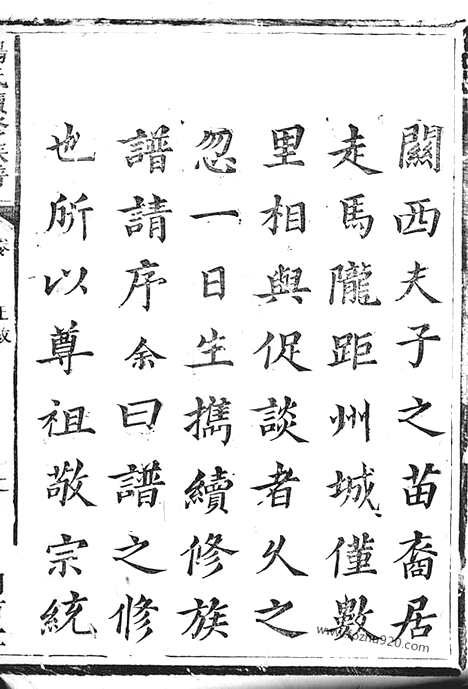 關西夫子之苗裔居
走馬隴距州城僅數
里相與促談者久之
忽一日生攜續修族
譜請序余曰譜之修
也所以尊祖敬宗統
楊氏續修族譜